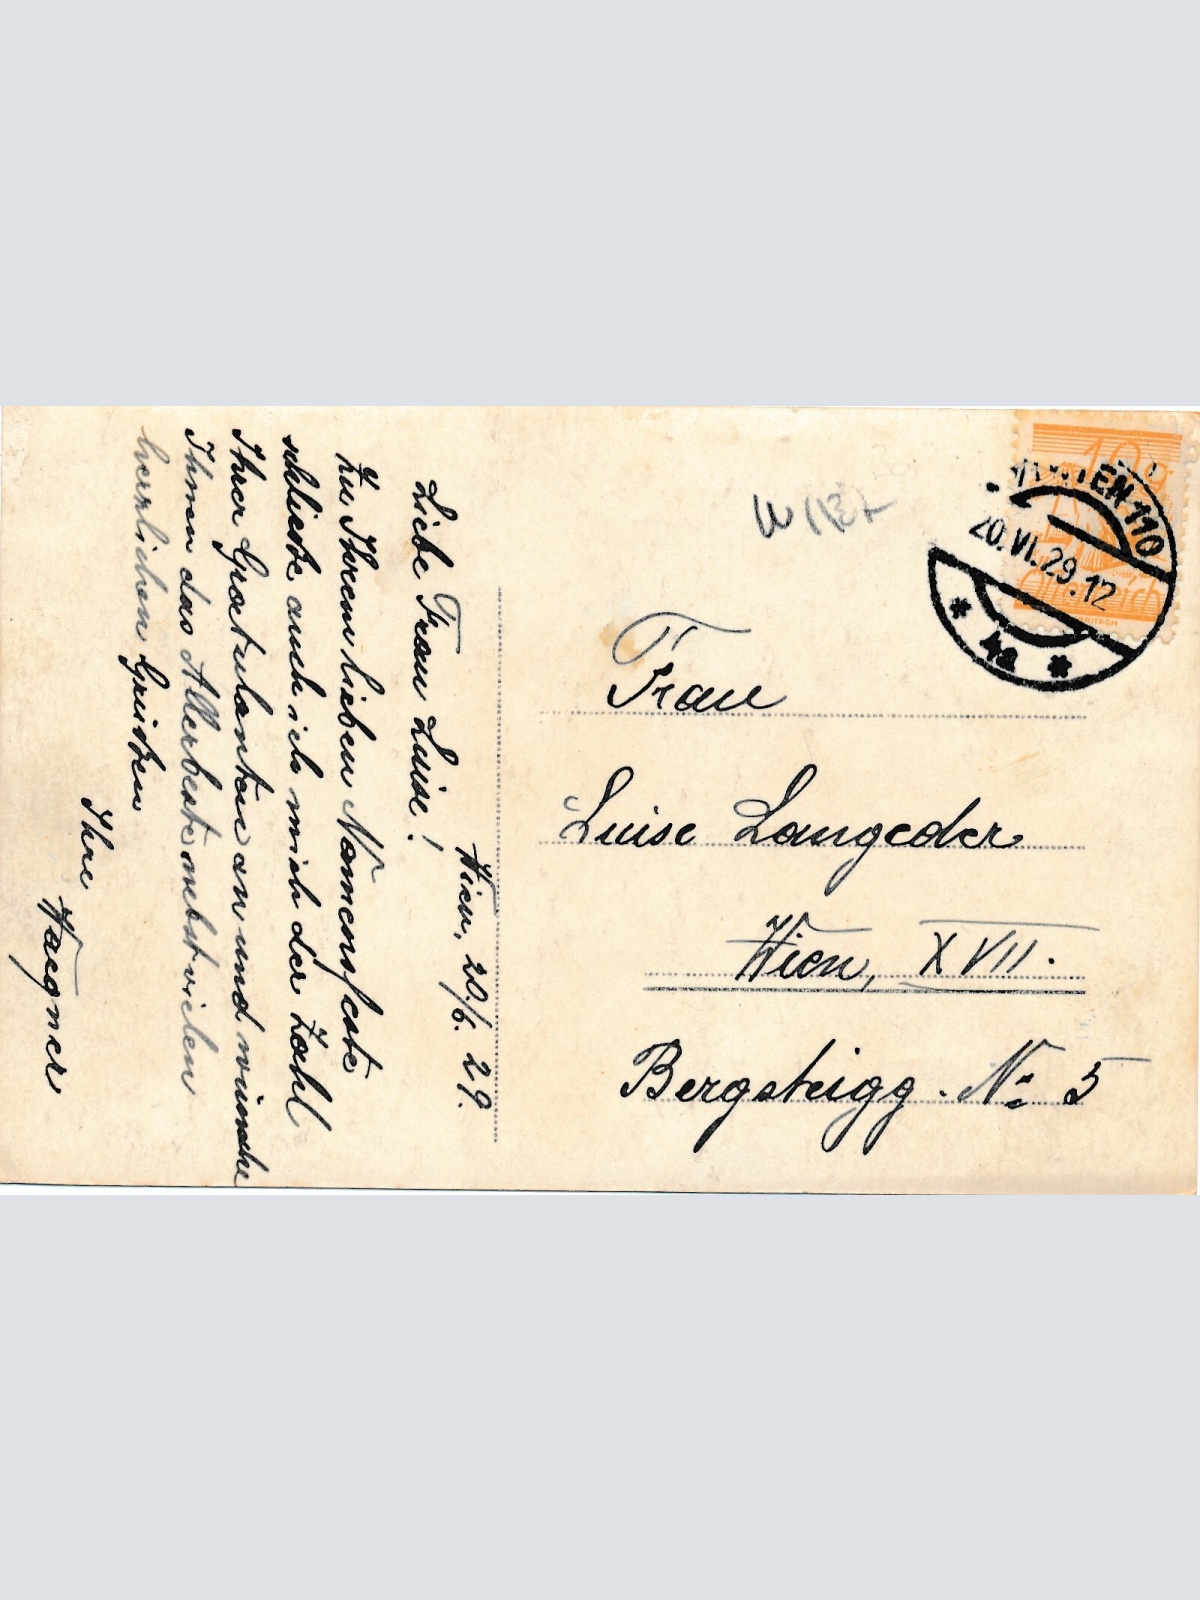 Wien, 20./6. 29.
Liebe Frau Luise!
Zu Ihrem lieben Namensfeste
schließe auch ich mich der Zahl
Ihrer Gratulanten an und wünsche
Ihnen das Allerbeste nebst vielen
herzlichen Grüßen
Ihre
Wagner
10g
Österreich
WIEN 110
20.VI.29.12
* 4a *
Frau
Luise Langeder
Wien, XVII.
Bergsteigg. No 5